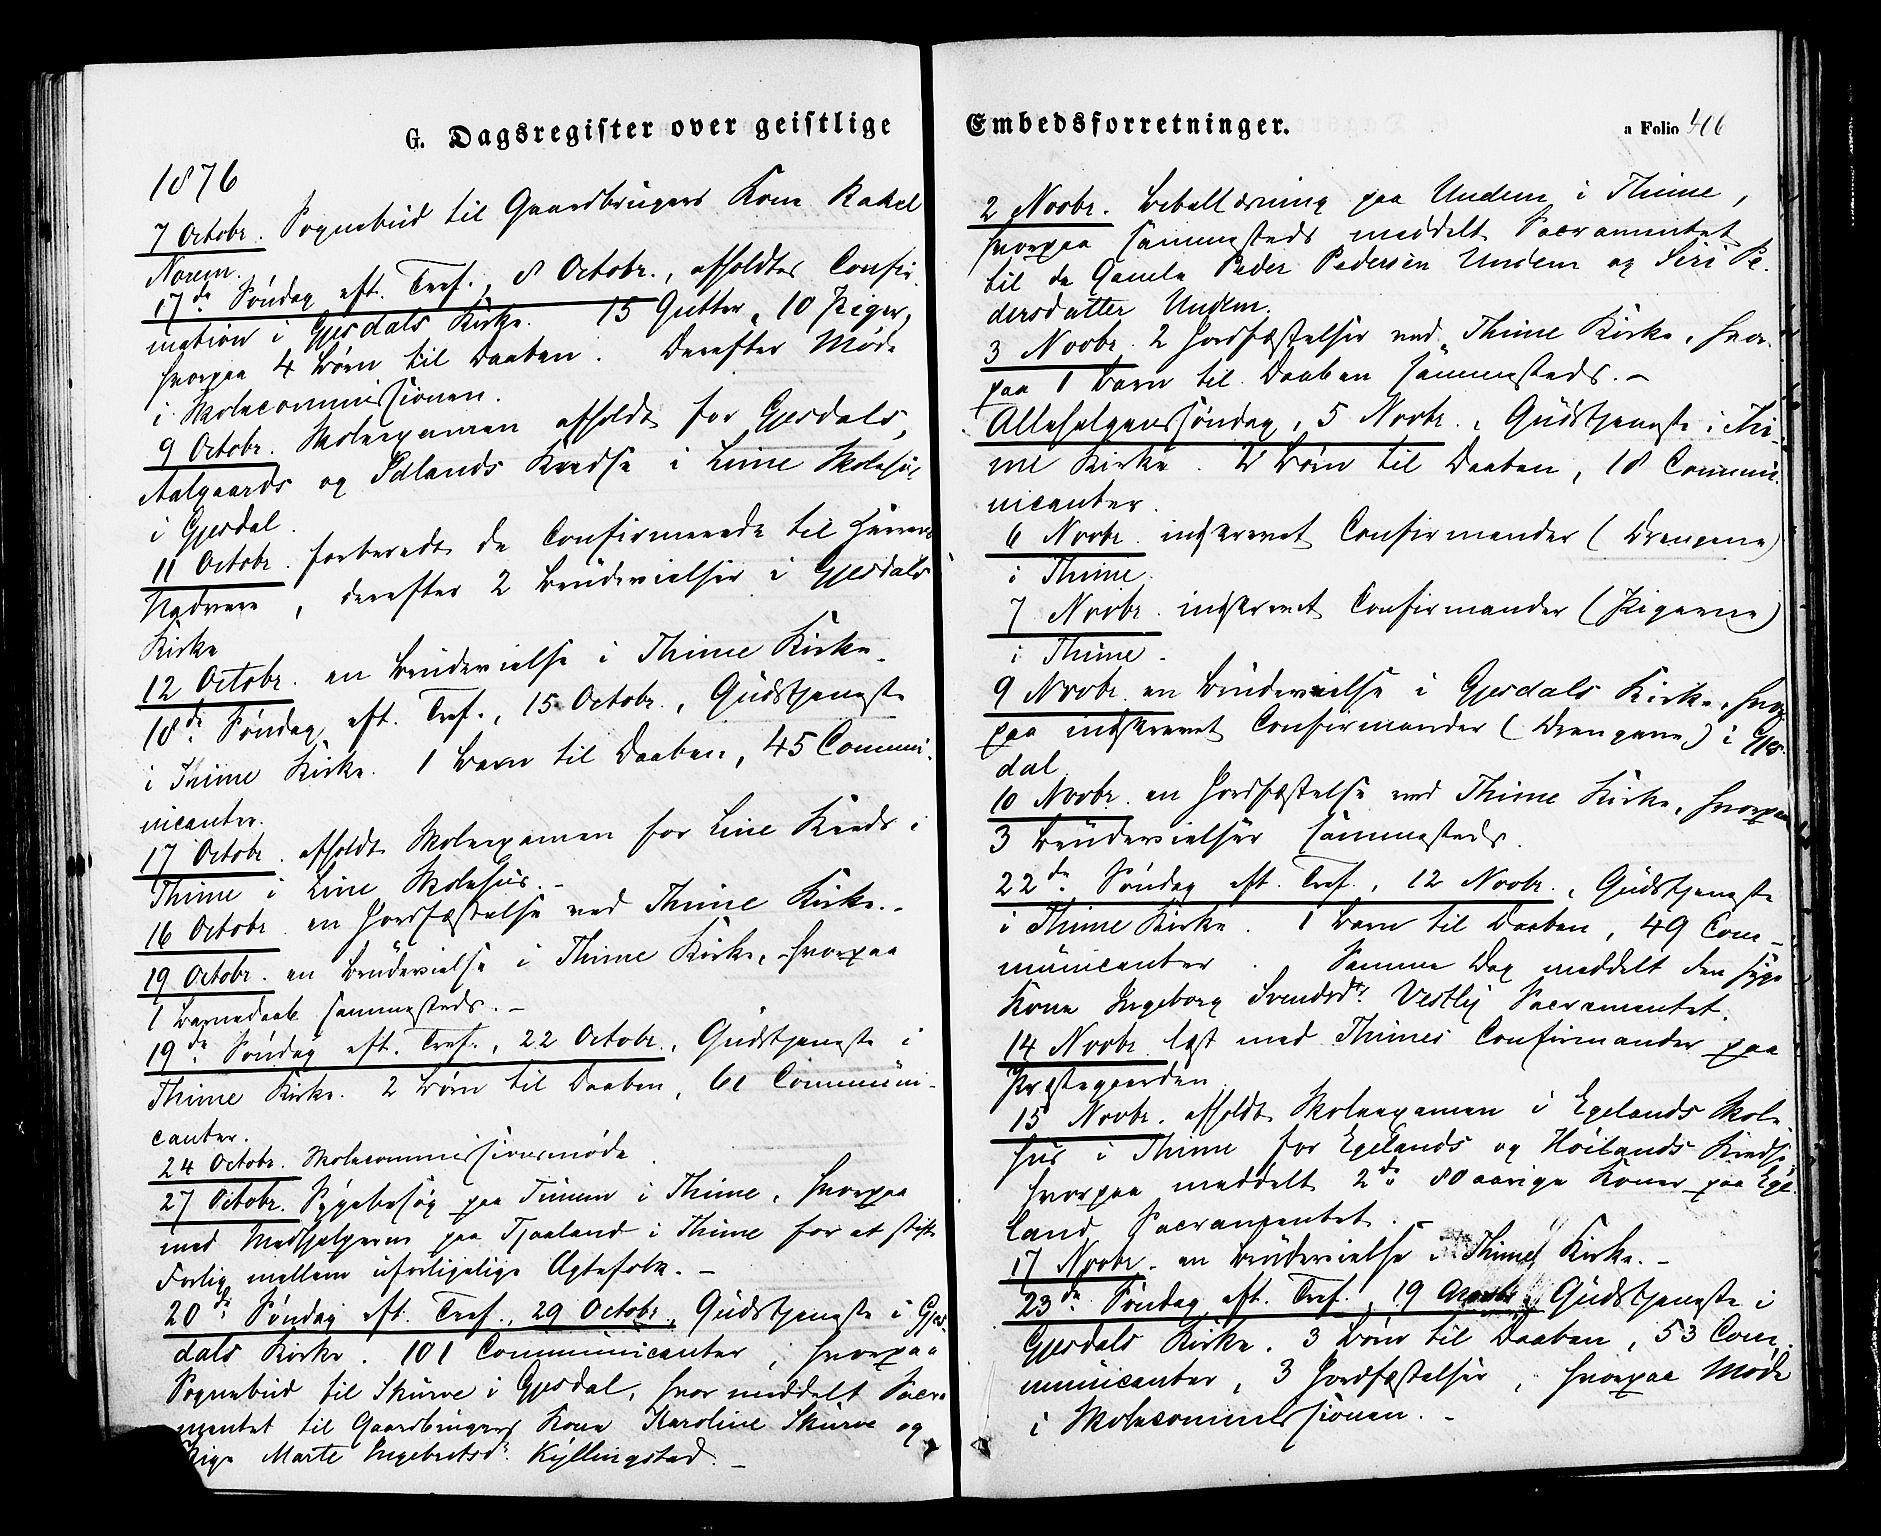 G. Dagsregister over geistlige
1876
7 Octobr. Sognebud til Gaardbrugers Kone Rakel
Norem.
17de Søndag eft. Tref., 8 Octobr., afholdtes Confir-
mation i Gjesdals Kirke. 15 Gutter, 10 Piger,
hvorpaa 4 Børn til Daaben. Derefter Møde
i Skolecommissionen.
9 Octobr. Skoleexamen afholdt for Gjesdals,
Aalgaards og Edlands Kredse i Lime Skolehus
i Gjesdal.
11 Octobr. forberedt de Confirmerede til Herrens
Nadvere, derefter 2 Brudevielser i Gjesdals
Kirke
12 Octobr. en Brudevielse i Thime Kirke.
18de Søndag eft. Tref., 15 Octobr., Gudstjeneste
i Thime Kirke. 1 Barn til Daaben, 45 Commu-
nicanter.
17 Octobr. afholdt Skoleexamen for Line Kreds i
Thime i Line Skolehus. –
16 Octobr. en Jordfæstelse ved Thime Kirke. –
19 Octobr. en Brudevielse i Thime Kirke, hvorpaa
1 Barnedaab sammesteds. –
19de Søndag eft. Tref., 22 Octobr., Gudstjeneste i
Thime Kirke. 2 Børn til Daaben, 61 Communi-
canter.
24 Octobr. Skolecommissionsmøde.
27 Octobr. Sygebesøg paa Tunem i Thime, hvorpaa
med Medhjælperne paa Tjaaland i Thime for at stifte
Forlig mellem uforligelige Ægtefolk. –
20de Søndag eft. Tref., 29 Octobr., Gudstjeneste i Gjes-
dals Kirke. 101 Communicanter, hvorpaa
Sognebud til Skurve i Gjesdal, hvor meddelt Sacra
mentet til Gaardbrugers Kone Karoline Skurve og
Pige Marte Ingebretsdr. Kyllingstad. –
Embedsforretninger.
a Folio 406
2 Novbr. Bebudelse paa Undem i Thime,
hvorpaa sammesteds meddelt Sacramentet
til de Gamle Peder Pedersen Undem og Siri Pe-
dersdatter Undem.
3 Novbr. 2 Jordfæstelser ved Thime Kirke, hvor-
paa 1 Barn til Daaben sammesteds. –
Allehelgenssøndag, 5 Novbr., Gudstjeneste i Thi-
me Kirke. 2 Børn til Daaben, 18 Commu-
nicanter.
6 Novbr. indskrevet Confirmander (Drengene)
i Thime.
7 Novbr. indskrevet Confirmander (Pigerne)
i Thime.
9 Novbr. en Brudevielse i Gjesdals Kirke, hvor
paa indskrevet Confirmander (Drengene) i Gjes-
dal.
10 Novbr. en Jordfæstelse ved Thime Kirke, hvorpaa
3 Brudevielser sammesteds.
22de Søndag eft. Tref., 12 Novbr., Gudstjeneste
i Thime Kirke. 1 Barn til Daaben, 49 Com-
municanter. Samme Dag meddelt den syge
Kone Ingeborg Svendsdtr. Vestly Sacramentet.
14 Novbr. læst med Thimes Confirmander paa
Præstegaarden
15 Novbr. afholdt Skoleexamen i Egelands Skole-
hus i Thime for Egelands og Høilands Kredse,
hvorpaa meddelt 2de 80aarige Koner paa Ege-
land Sacramentet. –
17 Novbr. en Brudevielse i Thime Kirke. –
23de Søndag eft. Tref., 19 Novbr., Gudstjeneste i
Gjesdals Kirke. 3 Børn til Daaben, 53 Com-
municanter, 3 Jordfæstelser, hvorpaa Møde
i Skolecommissionen. –